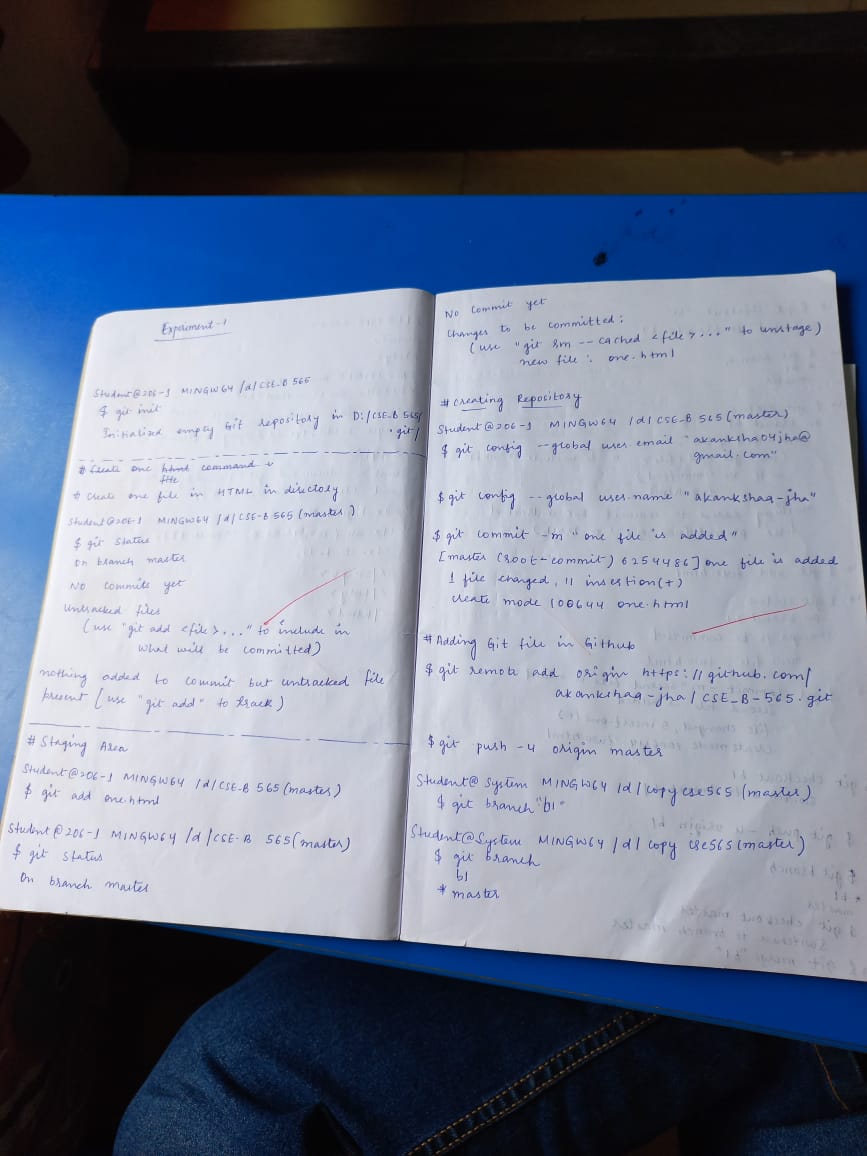 Experiment-1
Student@206-1 MINGW64 /d/CSE-B 565
$ git init
Initialized empty Git repository in D:/CSE-B 565/
.git/
# Create one html command
file
# create one file in HTML in directory
Student@206-1 MINGW64 /d/CSE-B 565 (master)
$ git status
On branch master
No commits yet
Untracked files
(use "git add <file>..." to include in
what will be committed)
nothing added to commit but untracked file
present (use "git add" to track)
# Staging Area
Student@206-1 MINGW64 /d/CSE-B 565 (master)
$ git add one.html
Student@206-1 MINGW64 /d/CSE-B 565 (master)
$ git status
On branch master
No commit yet
Changes to be committed:
(use "git rm --cached <file>..." to unstage)
new file: one.html
# Creating Repository
Student@206-1 MINGW64 /d/CSE-B 565 (master)
$ git config --global user.email "akanksha04jha@
gmail.com"
$ git config --global user.name "akankshaq-jha"
$ git commit -m "one file is added"
[master (root-commit) 6254486] one file is added
1 file changed, 11 insertion(+)
create mode 100644 one.html
# Adding Git file in Github
$ git remote add origin https://github.com/
akankshaq-jha/CSE_B-565.git
$ git push -u origin master
Student@System MINGW64 /d/copy cse565 (master)
$ git branch "b1"
Student@System MINGW64 /d/copy cse565 (master)
$ git branch
b1
* master